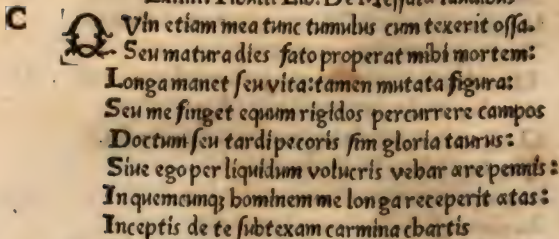 Lib. De
C QVin etiam mea tunc tumulus cum texerit oſſa.
Seu matura dies fato properat mihi mortem:
Longa manet ſeu vita: tamen mutata figura:
Seu me finget equum rigidos percurrere campos
Doctum ſeu tardi pecoris ſim gloria taurus:
Siue ego per liquidum volucris vehar ære pennis:
In quemcunq; hominem me longa receperit ætas:
Inceptis de te ſubtexam carmina chartis